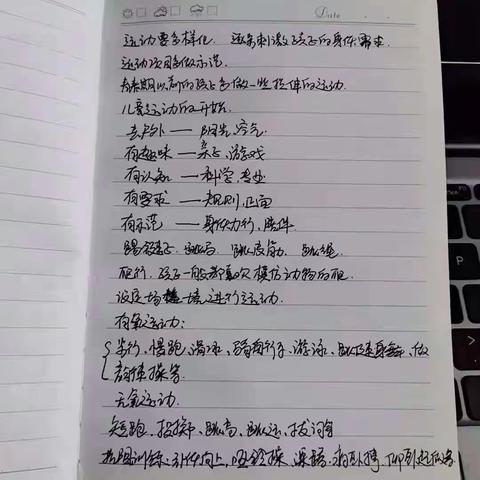 Date
运动要多样化. 逐渐刺激孩子的身体需求.
运动项目多做示范.
青春期以前的孩子多做一些拉伸的运动.
儿童运动的开始.
去户外 —— 阳光、空气.
有趣味 —— 亲子、游戏
有认知 —— 科学、专业
有要求 —— 规则、正面
有示范 —— 身体力行、陪伴
踢毽子、跳高、跳皮筋、跳绳.
爬行, 孩子一般都喜欢模仿动物的爬.
设定场景进行运动.
有氧运动:
步行、慢跑、滑冰、骑自行车、游泳、跳健身舞、做
韵律操等.
无氧运动.
短跑、投掷、跳高、跳远、拔河等
引体向上、哑铃操、俯卧撑、仰卧起坐等